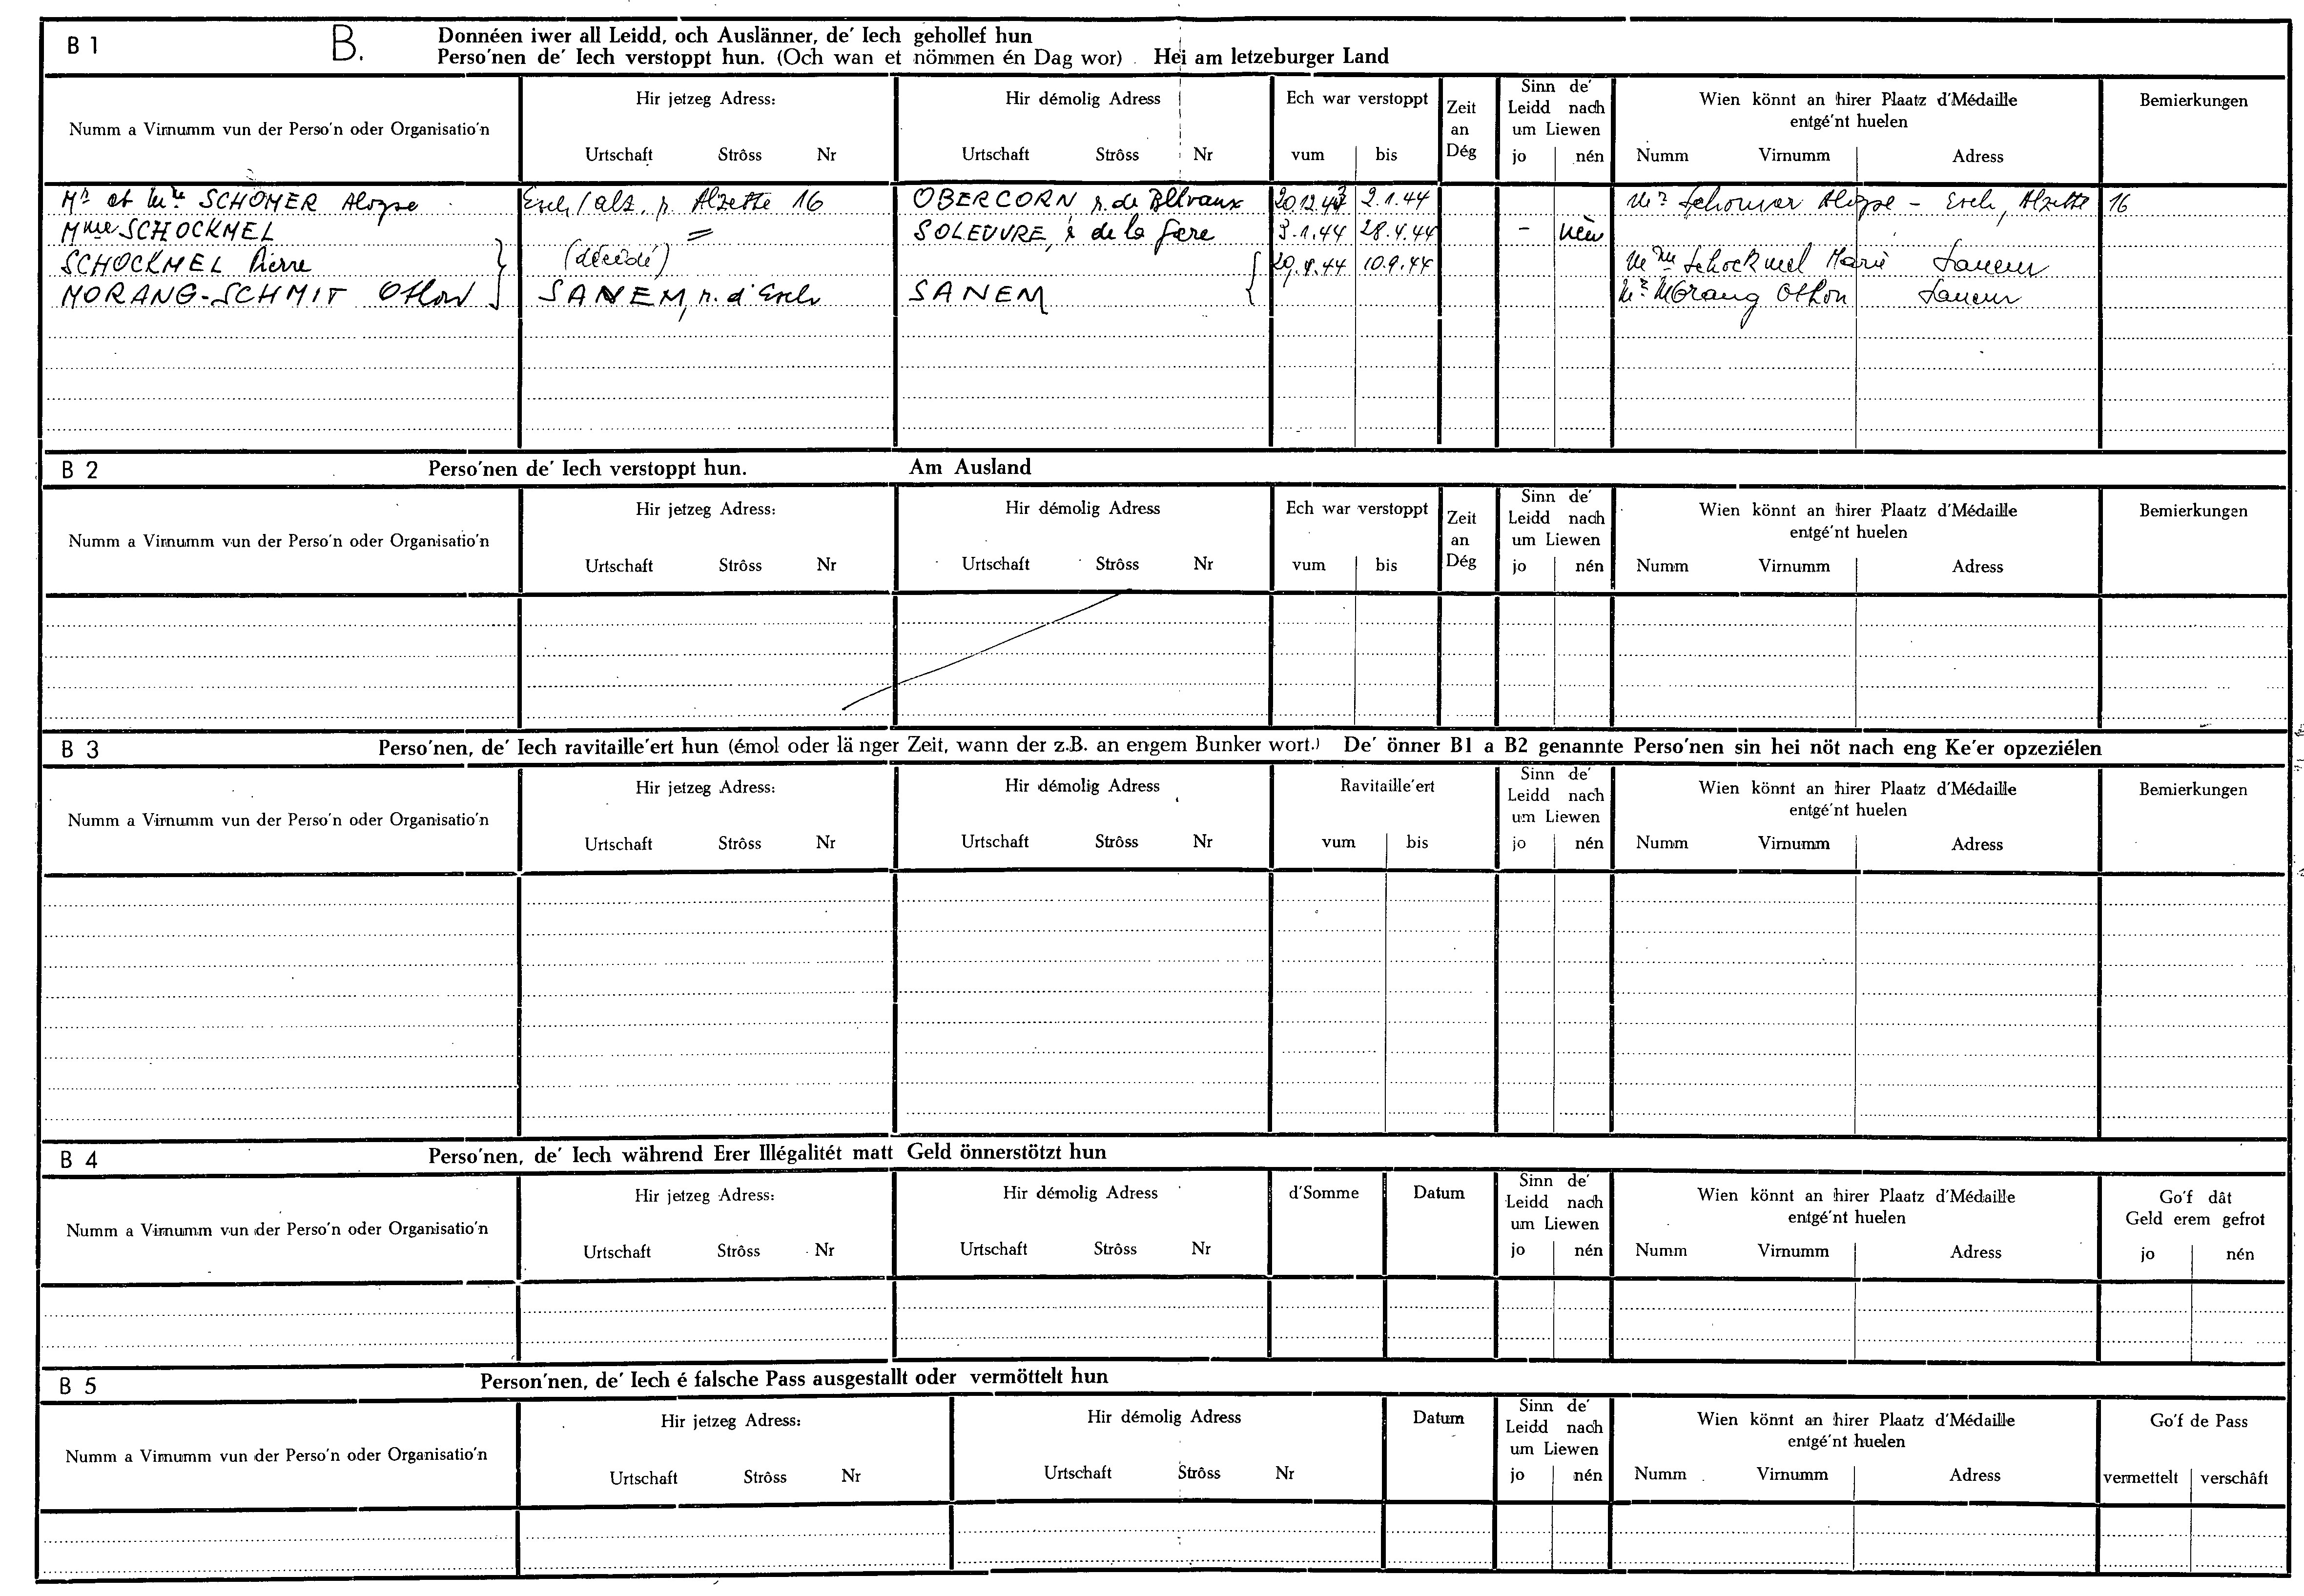 B 1 B. Donnéen iwer all Leidd, och Auslänner, de' Iech gehollef hun
Perso'nen de' Iech verstoppt hun. (Och wan et nömmen én Dag wor) Hei am letzeburger Land
Numm a Virnumm vun der Perso'n oder Organisatio'n
Hir jetzeg Adress:
Urtschaft Strôss Nr
Hir démolig Adress
Urtschaft Strôss Nr
Ech war verstoppt
vum bis
Zeit
an
Dég
Sinn de'
Leidd nach
um Liewen
jo nén
Wien könnt an hirer Plaatz d'Médaille
entgé'nt huelen
Numm Virnumm Adress
Bemierkungen
Mr et Mme SCHOMER Aloyse Esch/alz. r. Alzette 16 OBERCORN r. de Belvaux 20.12.43 2.1.44 Mr Schomer Aloyse – Esch, Alzette 16
Mme SCHOCKMEL = SOLEUVRE, r. de la Gare 3.1.44 28.4.44 – nén
SCHOCKMEL Pierre (décédé) 10.9.44 Mme Schockmel Marie Sanem
MORANG-SCHMIT Othon SANEM, r. d'Esch SANEM Mr Morang Othon Sanem
B 2 Perso'nen de' Iech verstoppt hun. Am Ausland
Numm a Virnumm vun der Perso'n oder Organisatio'n
Hir jetzeg Adress:
Urtschaft Strôss Nr
Hir démolig Adress
Urtschaft Strôss Nr
Ech war verstoppt
vum bis
Zeit
an
Dég
Sinn de'
Leidd nach
um Liewen
jo nén
Wien könnt an hirer Plaatz d'Médaille
entgé'nt huelen
Numm Virnumm Adress
Bemierkungen
B 3 Perso'nen, de' Iech ravitaille'ert hun (émol oder länger Zeit, wann der z.B. an engem Bunker wort.) De' önner B1 a B2 genannte Perso'nen sin hei nöt nach eng Ke'er opzeziélen
Numm a Virnumm vun der Perso'n oder Organisatio'n
Hir jetzeg Adress:
Urtschaft Strôss Nr
Hir démolig Adress
Urtschaft Strôss Nr
Ravitaille'ert
vum bis
Sinn de'
Leidd nach
um Liewen
jo nén
Wien könnt an hirer Plaatz d'Médaille
entgé'nt huelen
Numm Virnumm Adress
Bemierkungen
B 4 Perso'nen, de' Iech während Erer Illégalitét matt Geld önnerstötzt hun
Numm a Virnumm vun der Perso'n oder Organisatio'n
Hir jetzeg Adress:
Urtschaft Strôss Nr
Hir démolig Adress
Urtschaft Strôss Nr
d'Somme
Datum
Sinn de'
Leidd nach
um Liewen
jo nén
Wien könnt an hirer Plaatz d'Médaille
entgé'nt huelen
Numm Virnumm Adress
Go'f dât
Geld erem gefrot
jo nén
B 5 Person'nen, de' Iech é falsche Pass ausgestallt oder vermöttelt hun
Numm a Virnumm vun der Perso'n oder Organisatio'n
Hir jetzeg Adress:
Urtschaft Strôss Nr
Hir démolig Adress
Urtschaft Strôss Nr
Datum
Sinn de'
Leidd nach
um Liewen
jo nén
Wien könnt an hirer Plaatz d'Médaille
entgé'nt huelen
Numm Virnumm Adress
Go'f de Pass
vermettelt verschâft